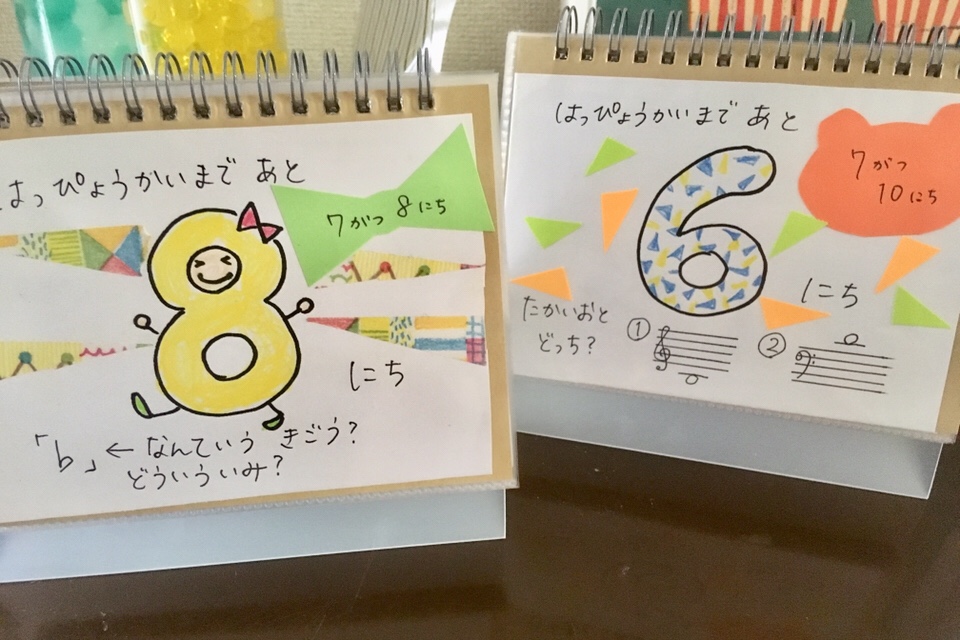 はっぴょうかいまで あと
7がつ 8にち
8
にち
「b」←なんていう きごう?
どういういみ?
はっぴょうかいまで あと
7がつ
10にち
6
にち
たかいおと
どっち?
①
②